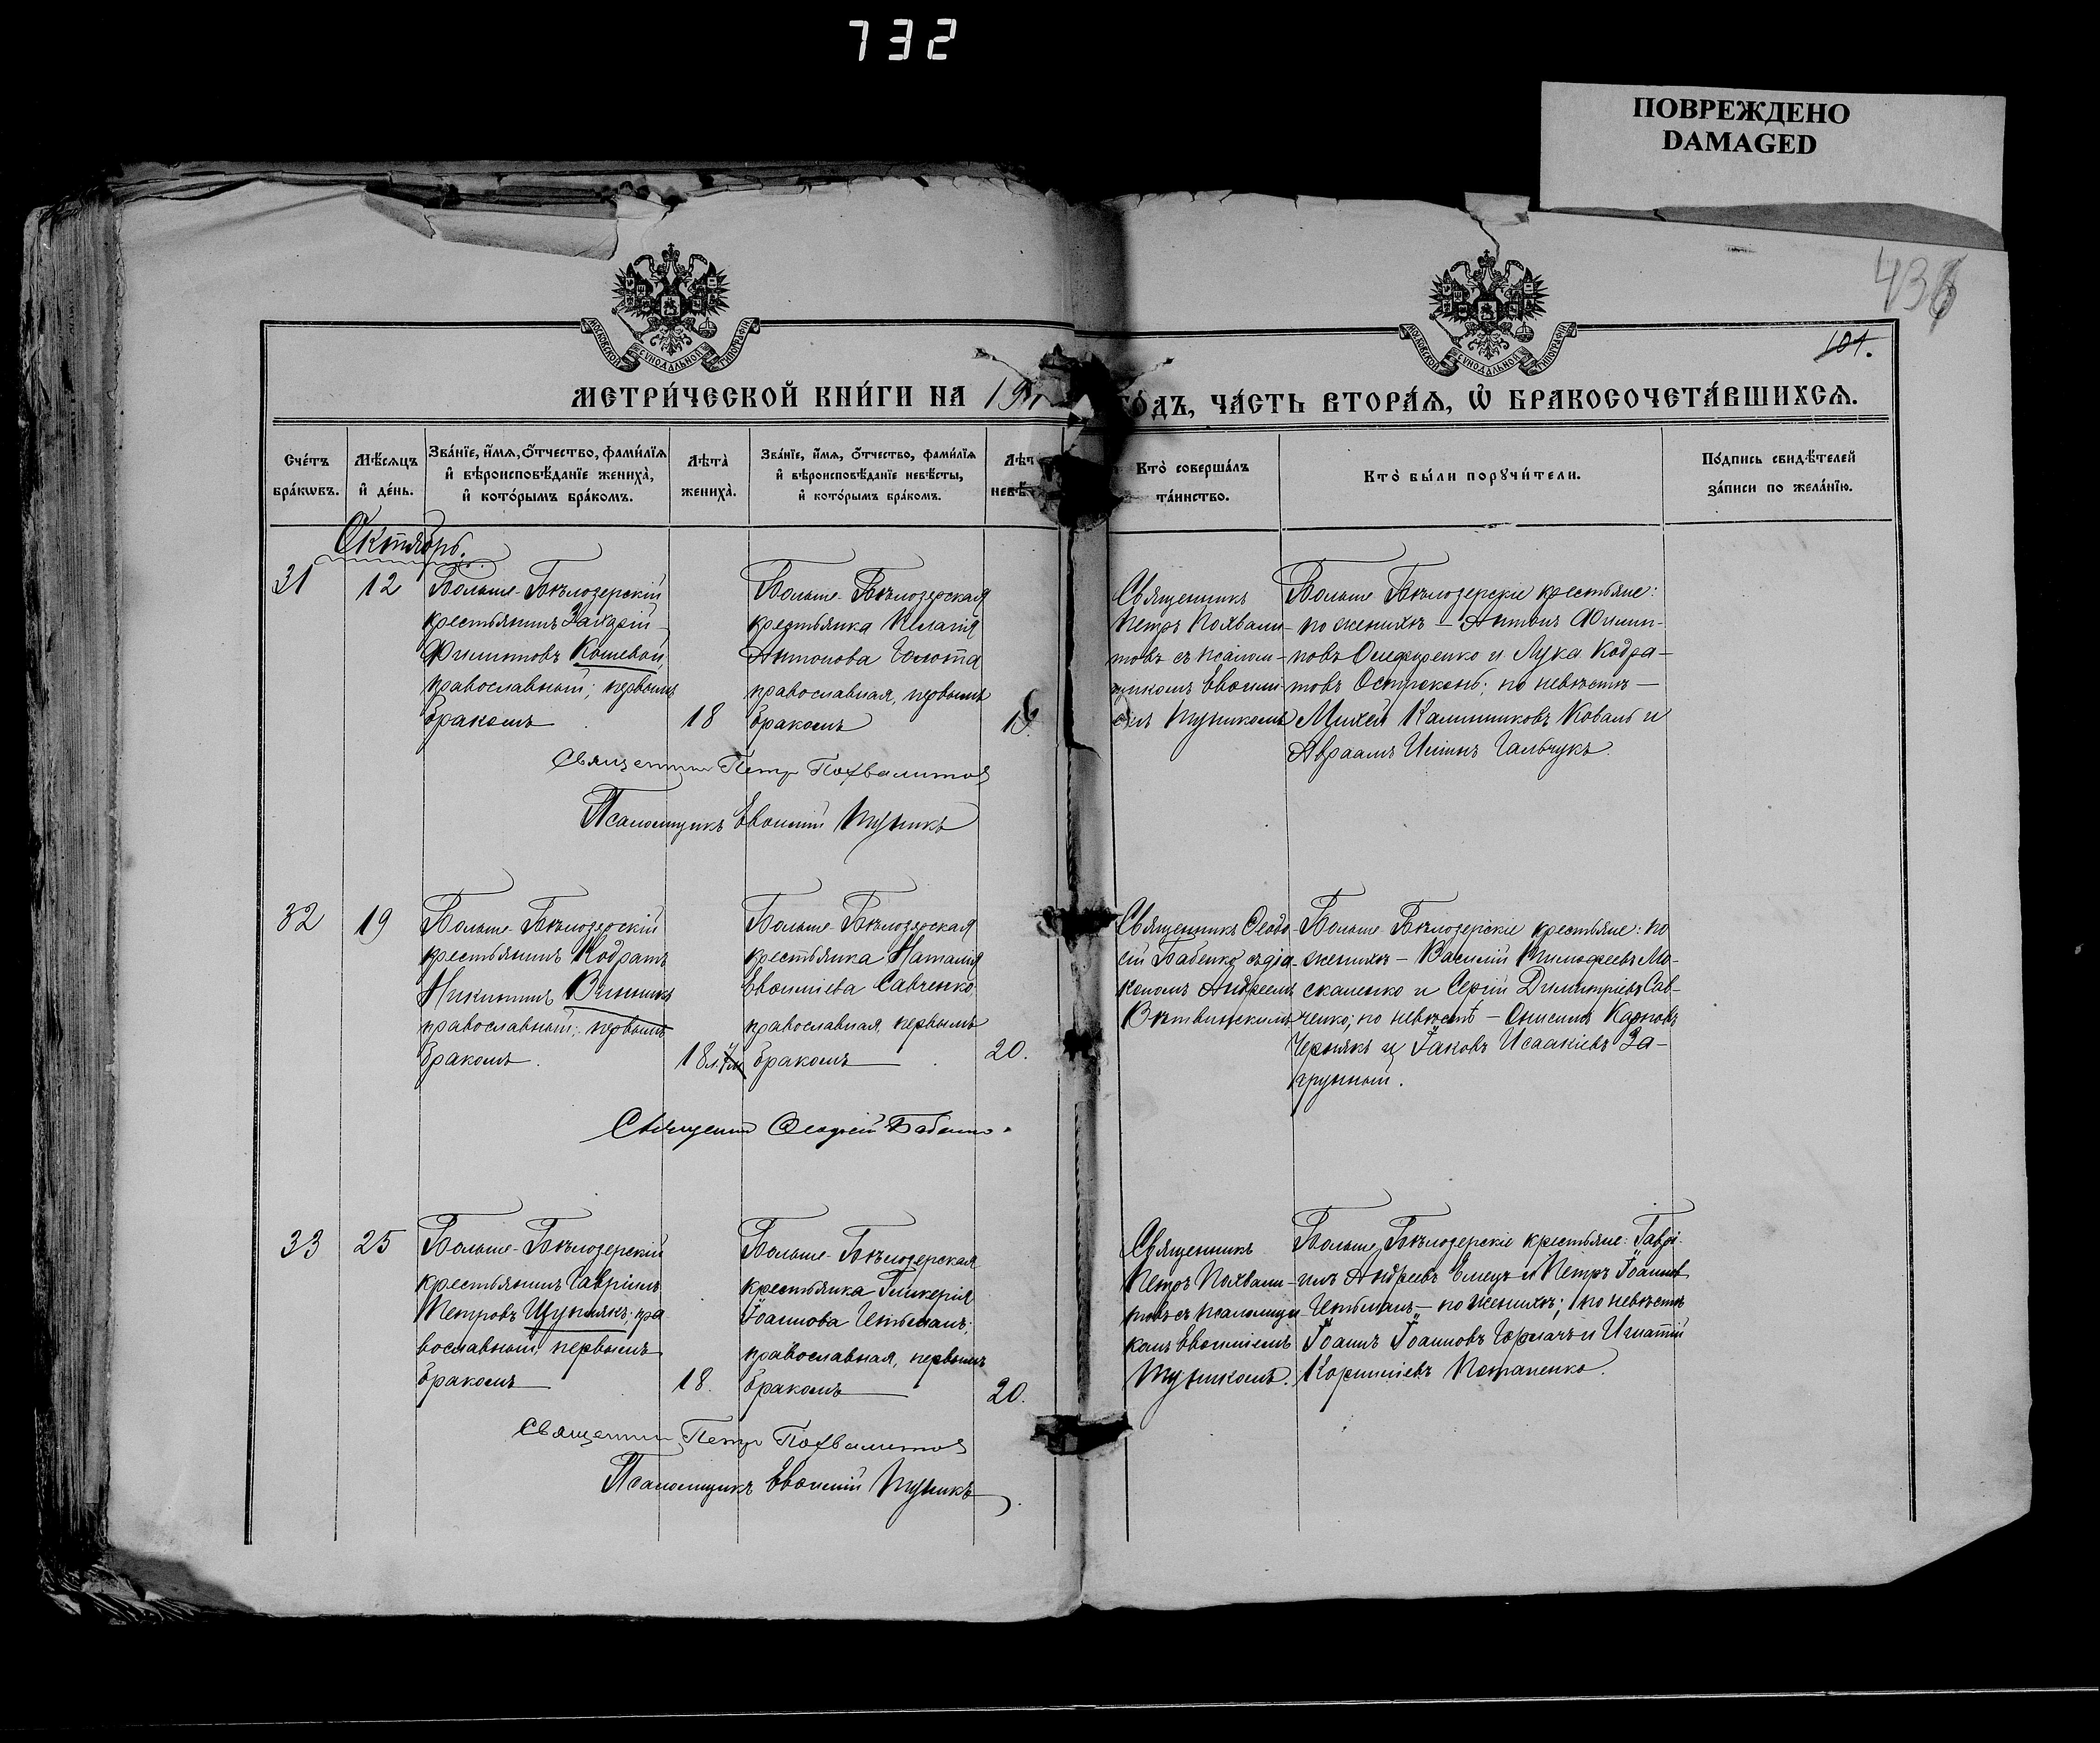 732
ПОВРЕЖДЕНО
DAMAGED
436
101.
МОСКОВСКОЙ СѴНОДАЛЬНОЙ ТИПОГРАФІИ
МОСКОВСКОЙ СѴНОДАЛЬНОЙ ТИПОГРАФІИ
МЕТРИ́ЧЕСКОЙ КНИ́ГИ НА 19 ГО́ДЪ, ЧА́СТЬ ВТОРА́Ѧ, Ѡ҆ БРАКОСОЧЕТА́ВШИХСѦ.
Сче́тъ
бра́кѡвъ.
Мѣ́сѧцъ
и҆ де́нь.
Зва́нїе, и҆́мѧ, ѻ҆́тчество, фами́лїѧ
и҆ вѣроисповѣ́данїе жениха̀,
и҆ кото́рымъ бра́комъ.
Лѣта̀
жениха̀.
Зва́нїе, и҆́мѧ, ѻ҆́тчество, фами́лїѧ
и҆ вѣроисповѣ́данїе невѣ́сты,
и҆ кото́рымъ бра́комъ.
Лѣт
невѣ
Кто̀ соверша́лъ
та́инство.
Кто̀ бы́ли порꙋчи́тели.
По́дпись свидѣ́телей
за́писи по жела́нїю.
Октябрь.
31
12
Больше-Бѣлозерскій
крестьянинъ Захарій
Филиповъ Кошевой,
православный; первымъ
бракомъ
18
Больше-Бѣлозерская
крестьянка Пелагія
Антонова Голота
православная, первымъ
бракомъ
Священникъ
Петръ Похвали-
товъ съ псалом-
щикомъ Евѳимі-
Пуникомъ
Больше Бѣлозерскіе крестьяне:
по женихѣ – Антонъ Филип-
повъ Олефиренко и Лука Кодра-
товъ Остроконь; по невѣстѣ –
Михей Калинниковъ Коваль и
Авраамъ Илiинъ Гальчукъ.
Священникъ Петръ Похвалитов
Псаломщикъ Евѳимій Пуникъ
32
19
Больше-Бѣлозерскій
крестьянинъ Кодратъ
Никитинъ Винникъ
православный; первымъ
бракомъ.
18
Больше-Бѣлозерская
крестьянка Наталія
Евѳиміева Савченко
православная первымъ
бракомъ
20.
Священникъ Ѳеодо-
сій Бабенко съ діа-
кономъ Андреемъ
Витвинскимъ
Больше-Бѣлозерскіе крестьяне: по
женихѣ – Василій Тимофеевъ Мо-
скаленко и Сергій Димитріевъ Сав-
ченко; по невѣстѣ – Онисимъ Карповъ
Чернякъ и Іаковъ Исаакіевъ За-
грунный.
Священникъ Ѳеодосій Бабенко.
33
25
Больше-Бѣлозерскій
крестьянинъ Гавріилъ
Петровъ Щупякъ; пра
вославный, первымъ
бракомъ
18.
Больше-Бѣлозерская
крестьянка Гликерія
Іоаннова Цыбманъ;
православная, первымъ
бракомъ
20.
Священникъ
Петръ Похвали-
товъ съ псаломщи-
комъ Евѳиміемъ
Пуникомъ.
Больше Бѣлозерскіе крестьяне: Гаврі-
илъ Андреевъ Емецъ и Петръ Іоанновъ
– по женихѣ; по невѣстѣ
Іоаннъ Іоанновъ Гормачъ и Игнатій
Корниліевъ Потапенко.
Священникъ Петръ Похвалитов
Псаломщикъ Евѳимій Пуникъ